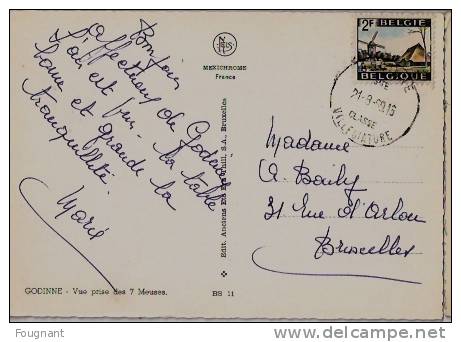 Bonjour
affectueux de Godinne
L'air est pur - la table
bonne et grande la
tranquillité.
Marie
MEXICHROME
France
2F BELGIE
BELGIQUE
21-9-69 16
CLASSE
VILLEGIATURE
Madame
A Bailly
31 Rue d'Arlon
Bruxelles
Edit. Anciens Ets. Thill, S.A., Bruxelles
GODINNE - Vue prise des 7 Meuses.
BS 11
Fougnant
delcampe.net